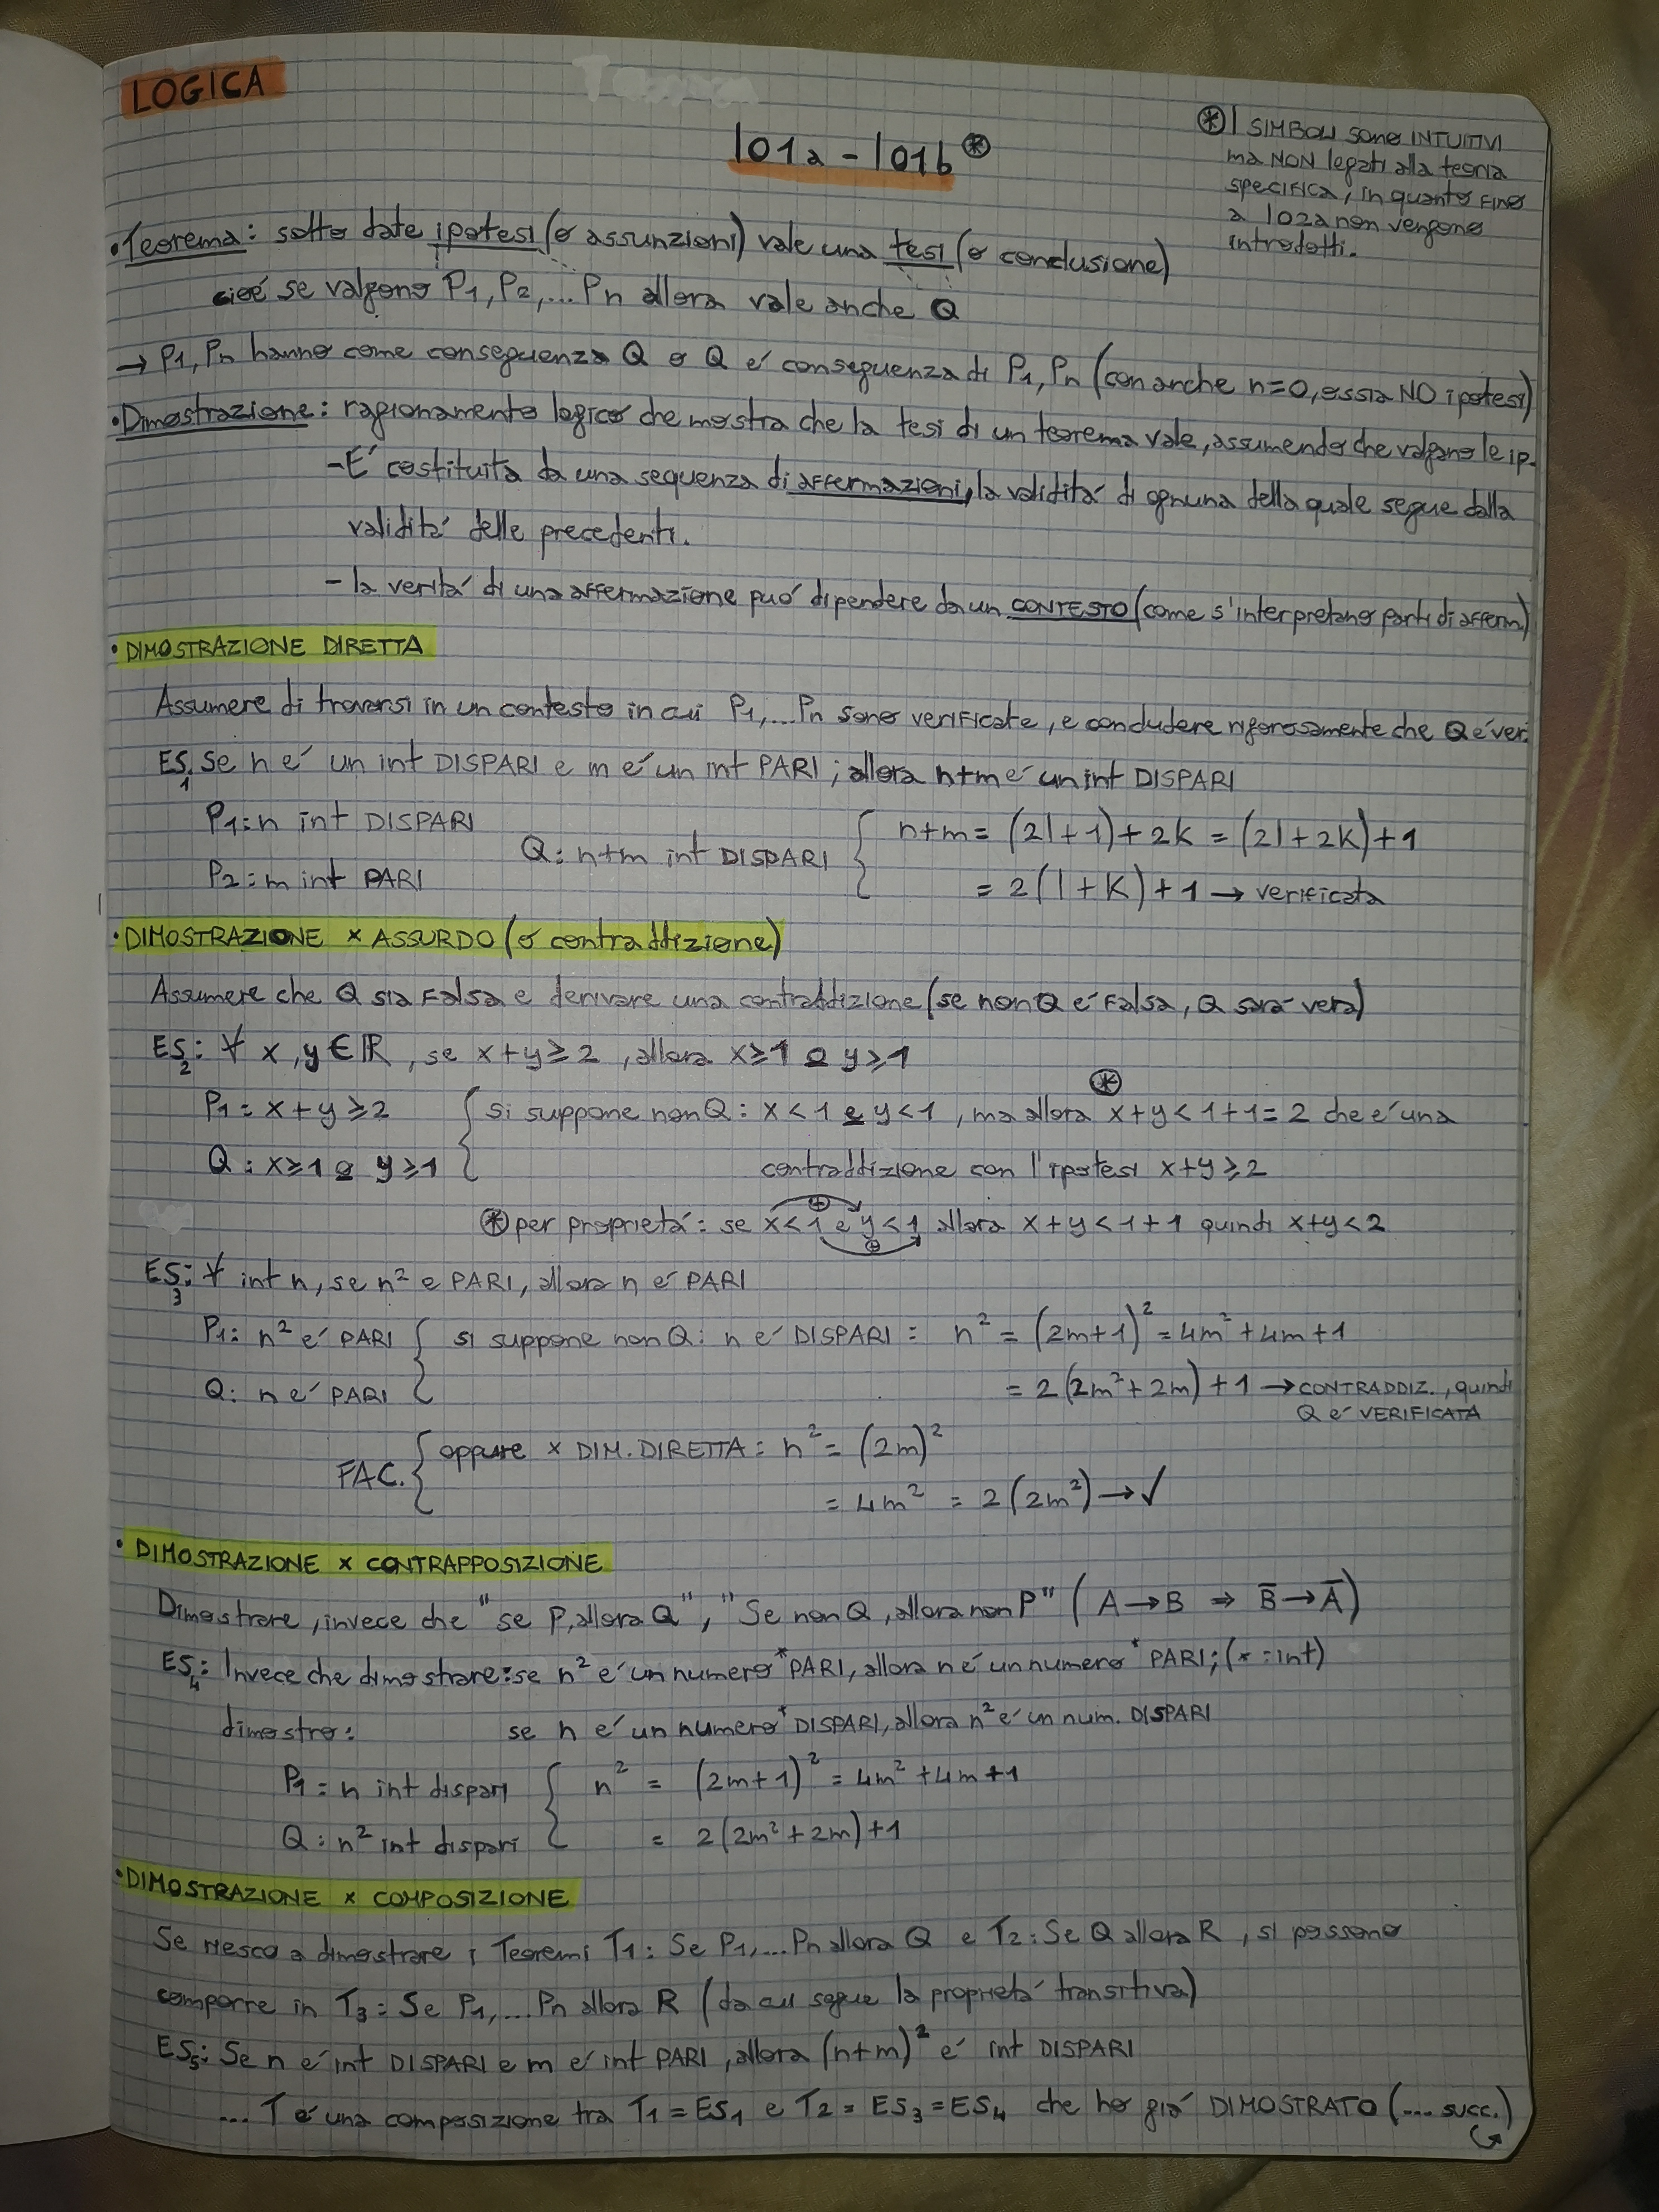 LOGICA
l01a - l01b ⊛
⊛ I SIMBOLI sono INTUITIVI
ma NON legati alla teoria
SPECIFICA, in quanto FINO
a l02a non vengono
introdotti.
• Teorema: sotto date ipotesi (o assunzioni) vale una tesi (o conclusione)
cioé se valgono P1, P2, ... Pn allora vale anche Q
→ P1, Pn hanno come conseguenza Q o Q é conseguenza di P1, Pn (con anche n=0, ossia NO ipotesi)
• Dimostrazione: ragionamento logico che mostra che la tesi di un teorema vale, assumendo che valgano le ip.
- É costituita da una sequenza di affermazioni, la validitá di ognuna della quale segue dalla
validitá delle precedenti.
- la veritá di una affermazione puó dipendere da un CONTESTO (come s'interpretano parti di afferm.)
• DIMOSTRAZIONE DIRETTA
Assumere di trovarsi in un contesto in cui P1, ... Pn sono verificate, e concludere rigorosamente che Q é ver.
ES1: Se n é un int DISPARI e m é un int PARI; allora n+m é un int DISPARI
P1: n int DISPARI
P2: m int PARI
Q: n+m int DISPARI { n+m = (2l+1)+2k = (2l+2k)+1
= 2(l+k)+1 → verificata
• DIMOSTRAZIONE × ASSURDO (o contraddizione)
Assumere che Q sia Falsa e derivare una contraddizione (se non Q é Falsa, Q sará vera)
ES2: ∀ x, y ∈ ℝ, se x+y ≥ 2, allora x ≥ 1 o y ≥ 1
⊛
P1 = x+y ≥ 2 { si suppone non Q: x < 1 e y < 1, ma allora x+y < 1+1 = 2 che é una
Q: x ≥ 1 o y ≥ 1 contraddizione con l'ipotesi x+y ≥ 2
⊛ per proprietá: se x < 1 e y < 1 allora x+y < 1+1 quindi x+y < 2
ES3: ∀ int n, se n² e PARI, allora n é PARI
P1: n² é PARI { si suppone non Q: n é DISPARI: n² = (2m+1)² = 4m²+4m+1
Q: n é PARI = 2(2m²+2m)+1 → CONTRADDIZ., quindi
Q é VERIFICATA
FAC. { oppure × DIM. DIRETTA: n² = (2m)²
= 4m² = 2(2m²) → ✓
• DIMOSTRAZIONE × CONTRAPPOSIZIONE
Dimostrare, invece che "se P, allora Q", "Se non Q, allora non P" (A → B ⇒ B̄ → Ā)
ES4: Invece che dimostrare: se n² é un numero* PARI, allora n é un numero* PARI; (* : int)
dimostro: se n é un numero* DISPARI, allora n² é un num. DISPARI
P1 = n int dispari { n² = (2m+1)² = 4m²+4m+1
Q: n² int dispari = 2(2m²+2m)+1
• DIMOSTRAZIONE × COMPOSIZIONE
Se riesco a dimostrare i Teoremi T1: Se P1, ... Pn allora Q e T2: Se Q allora R, si possono
comporre in T3: Se P1, ... Pn allora R (da cui segue la proprietá transitiva)
ES5: Se n é int DISPARI e m é int PARI, allora (n+m)² é int DISPARI
... T é una composizione tra T1 = ES1 e T2 = ES3 = ES4 che ho giá DIMOSTRATO (... succ.)